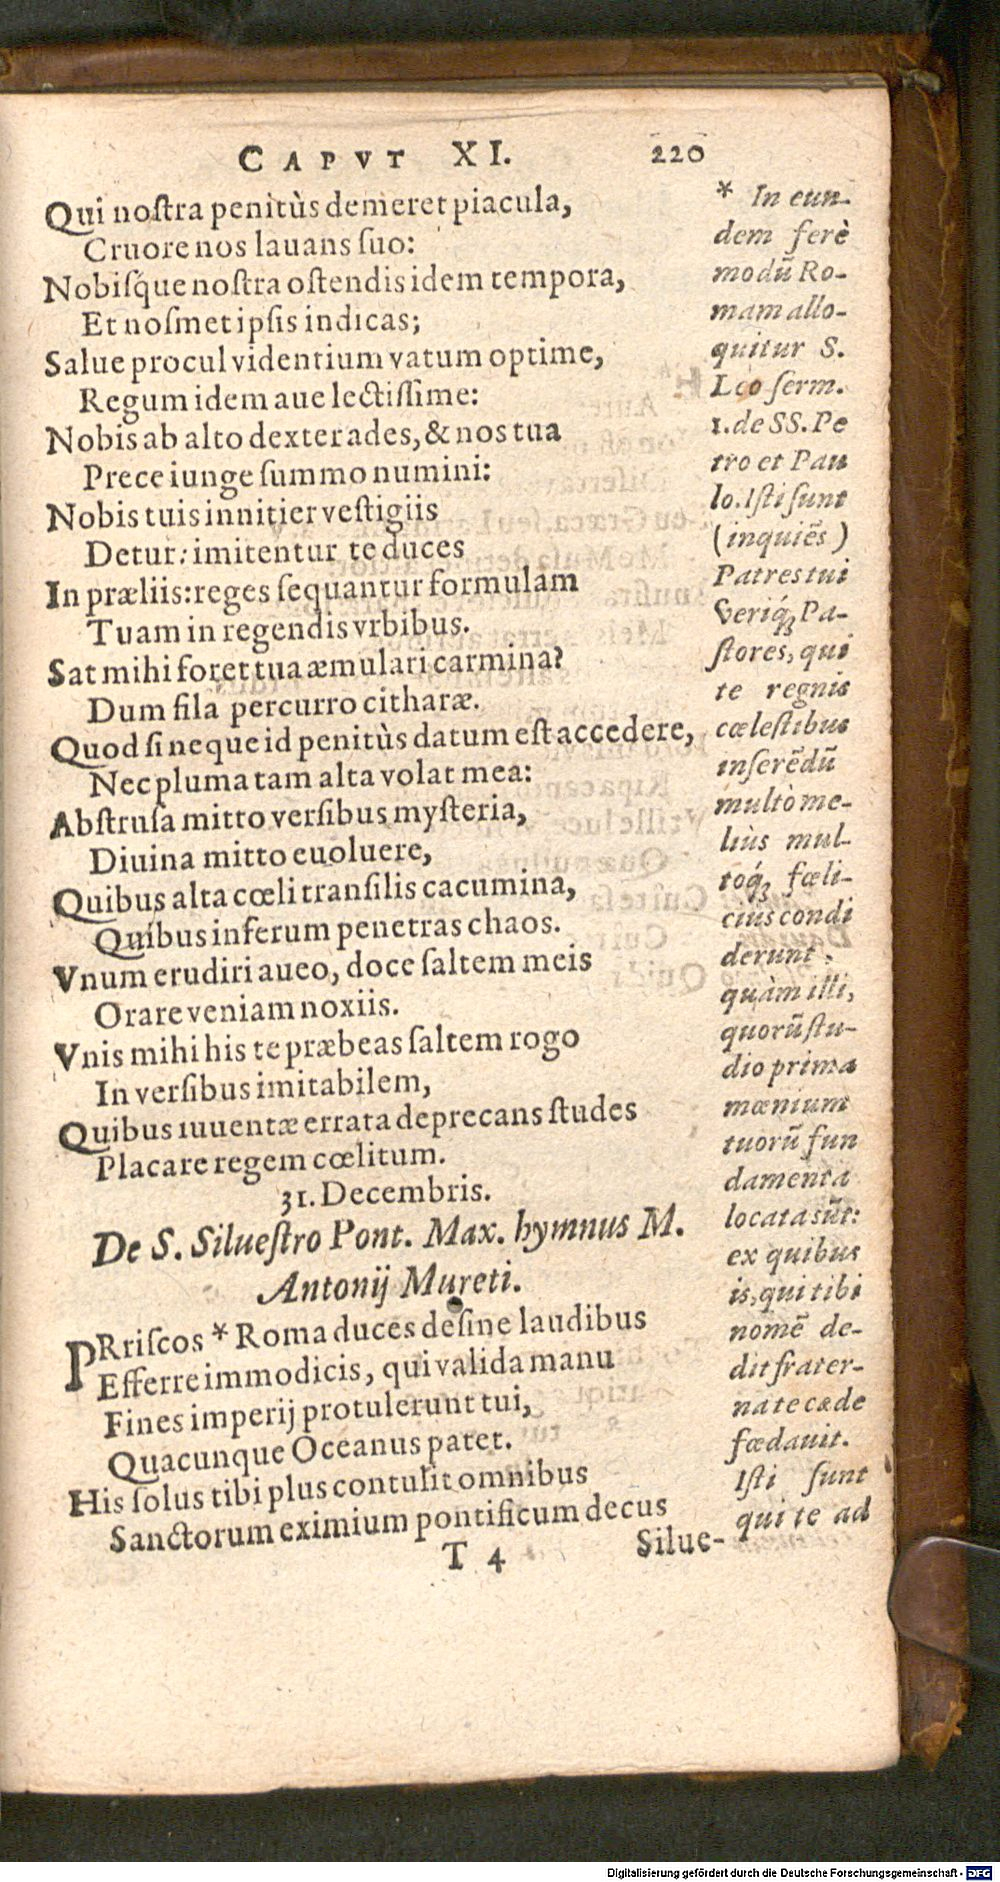 CAPVT XI. 220
Qui noſtra penitùs demeret piacula,
Cruore nos lauans ſuo:
Nobiſq́ue noſtra oſtendis idem tempora,
Et noſmet ipſis indicas;
Salue procul videntium vatum optime,
Regum idem aue lectiſſime:
Nobis ab alto dexter ades, & nos tua
Prece iunge ſummo numini:
Nobis tuis innitier veſtigiis
Detur: imitentur te duces
In præliis: reges ſequantur formulam
Tuam in regendis vrbibus.
Sat mihi foret tua æmulari carmina?
Dum fila percurro citharæ.
Quod ſi neque id penitùs datum eſt accedere,
Nec pluma tam alta volat mea:
Abſtruſa mitto verſibus myſteria,
Diuina mitto euoluere,
Quibus alta cœli tranſilis cacumina,
Quibus inferum penetras chaos.
Vnum erudiri aueo, doce ſaltem meis
Orare veniam noxiis.
Vnis mihi his te præbeas ſaltem rogo
In verſibus imitabilem,
Quibus iuuentæ errata deprecans ſtudes
Placare regem cœlitum.
31. Decembris.
De S. Silueſtro Pont. Max. hymnus M.
Antonij Mureti.
PRriſcos * Roma duces deſine laudibus
Efferre immodicis, qui valida manu
Fines imperij protulerunt tui,
Quacunque Oceanus patet.
His ſolus tibi plus contulit omnibus
Sanctorum eximium pontificum decus
T 4 Silue-
* In eun-
dem ferè
modū Ro-
mam allo-
quitur S.
Leo ſerm.
1. de SS. Pe
tro et Pau
lo. Iſti ſunt
(inquiēs)
Patres tui
veriq́ꝫ Pa-
ſtores, qui
te regnis
cœleſtibus
inſerēdū
multò me-
liùs mul-
toq́ꝫ fœli-
ciùs condi
derunt,
quàm illi,
quorū ſtu-
dio prima
mœnium
tuorū fun
damenta
locata sūt:
ex quibus
is, qui tibi
nomē de-
dit frater-
na te cæde
fœdauit.
Iſti ſunt
qui te ad
Digitalisierung gefördert durch die Deutsche Forschungsgemeinschaft - DFG